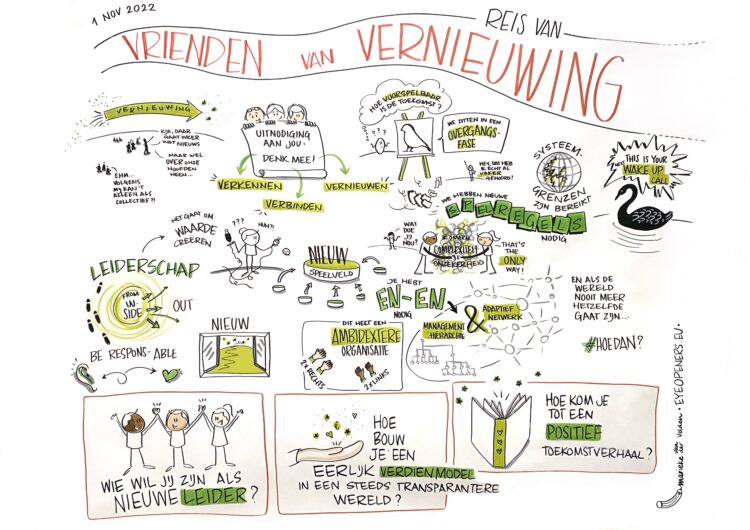 1 NOV 2022
REIS VAN
VRIENDEN VAN VERNIEUWING
VERNIEUWING
KIJK, DAAR
GAAT WEER
WAT NIEUWS
MAAR WEL
OVER ONZE
HOOFDEN
HEEN...
EHM...
VOLGENS
MY KAN'T
ALLEEN ALS
COLLECTIEF?!
UITNODIGING
AAN JOU:
DENK MEE!
VERKENNEN
VERBINDEN
VERNIEUWEN
HOE VOORSPELBAAR
IS DE TOEKOMST?
???
WE ZITTEN IN EEN
OVERGANGS-
FASE
HEY, DAT HEB
IK ECHT AL
VAKER
GEHOORD!
SYSTEEM-
GRENZEN
ZIJN BEREIKT
THIS IS YOUR
WAKE UP
CALL
WE HEBBEN NIEUWE
SPELREGELS
NODIG
HET GAAT OM
WAARDE
CREËREN
???
HUH?!
NIEUW
SPEELVELD
WAT
DOE JIJ
NOU?
COMPLEXITEIT
ONZEKERHEID
THAT'S
THE ONLY
WAY!
LEIDERSCHAP
FROM
IN-
SIDE
OUT
BE RESPONS-ABLE
NIEUW
JE HEBT
EN-EN
NODIG
DIT HEET EEN
AMBIDEXTERE
ORGANISATIE
2x RECHTS
2x LINKS
MANAGEMENT
HIËRARCHIE
&
ADAPTIEF
NETWERK
EN ALS DE
WERELD
NOOIT MEER
HETZELFDE
GAAT ZIJN...
#HOEDAN?
WIE WIL JIJ ZIJN ALS
NIEUWE LEIDER?
HOE
BOUW
JE EEN
EERLIJK VERDIENMODEL
IN EEN STEEDS TRANSPARANTERE
WERELD?
HOE KOM JE
TOT EEN
POSITIEF
TOEKOMSTVERHAAL?
marieke van der Velden • EYEOPENERS.EU •